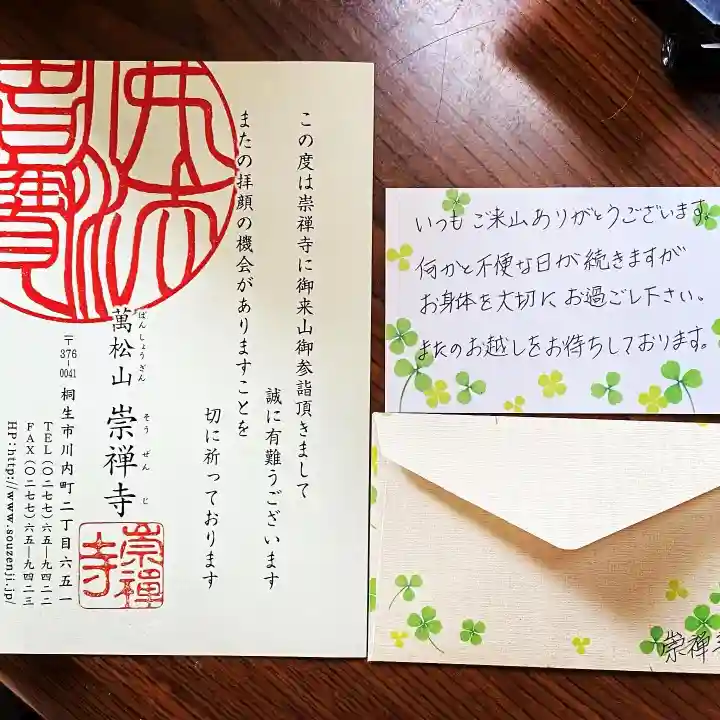 この度は崇禅寺に御来山御参詣頂きまして
誠に有難うございます
またの拝顔の機会がありますことを
切に祈っております
ばんしょうざん そうぜんじ
萬松山 崇禅寺
〒376-0041 桐生市川内町二丁目六五一
TEL(〇二七七)六五―九四二二
FAX(〇二七七)六五―九四二三
HP:http://www.souzenji.jp/
崇禅
寺
いつもご来山ありがとうございます。
何かと不便な日が続きますが
お身体を大切にお過ごし下さい。
またのお越しをお待ちしております。
崇禅寺